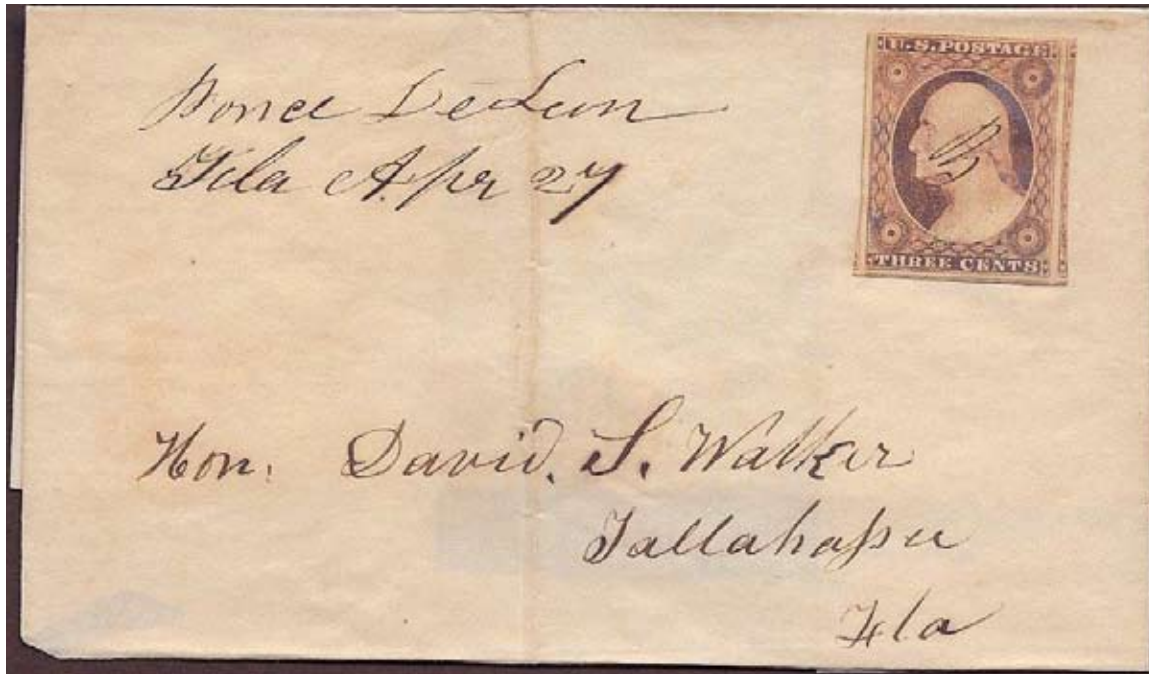 Ponce De Leon
Fla Apr 27
U.S. POSTAGE
THREE CENTS
Hon. David. S. Walker
Tallahassee
Fla